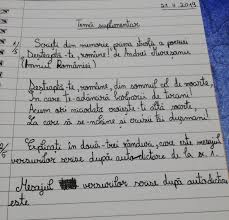 21. 11. 2013
Temă suplimentar
1/ Scrieți din memorie prima strofă a poeziei
5 Deșteaptă-te, române! de Andrei Mureșanu
(Imnul României)
Deșteaptă-te, române, din somnul cel de moarte,
În care te-adânciră barbarii de tirani!
Acum ori niciodată croiește-ți altă soarte,
La care să se-nchine și cruzii tăi dușmani!
2/ Explicați în două-trei rânduri, care este mesajul
5 versurilor scrise după autodictare de la ex. 1.
Mesajul versurilor scrise după autodictare
este